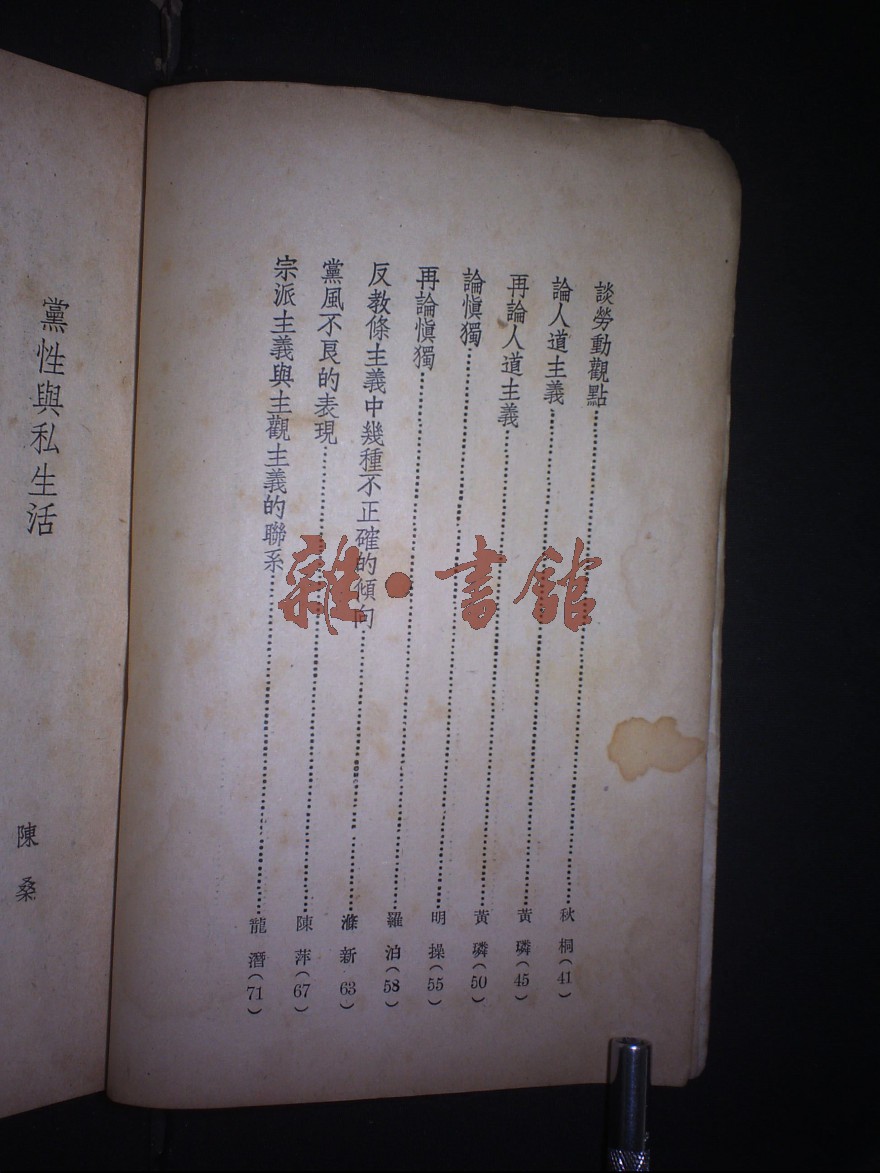 談勞動觀點……秋桐(41)
論人道主義……黃璘(45)
再論人道主義……黃璘(50)
論慎獨……明操(55)
再論慎獨……羅泊(58)
反教條主義中幾種不正確的傾向……滌新 63)
黨風不良的表現……陳萍(67)
宗派主義與主觀主義的聯系……龍潛(71)
黨性與私生活
陳桑
雜·書館